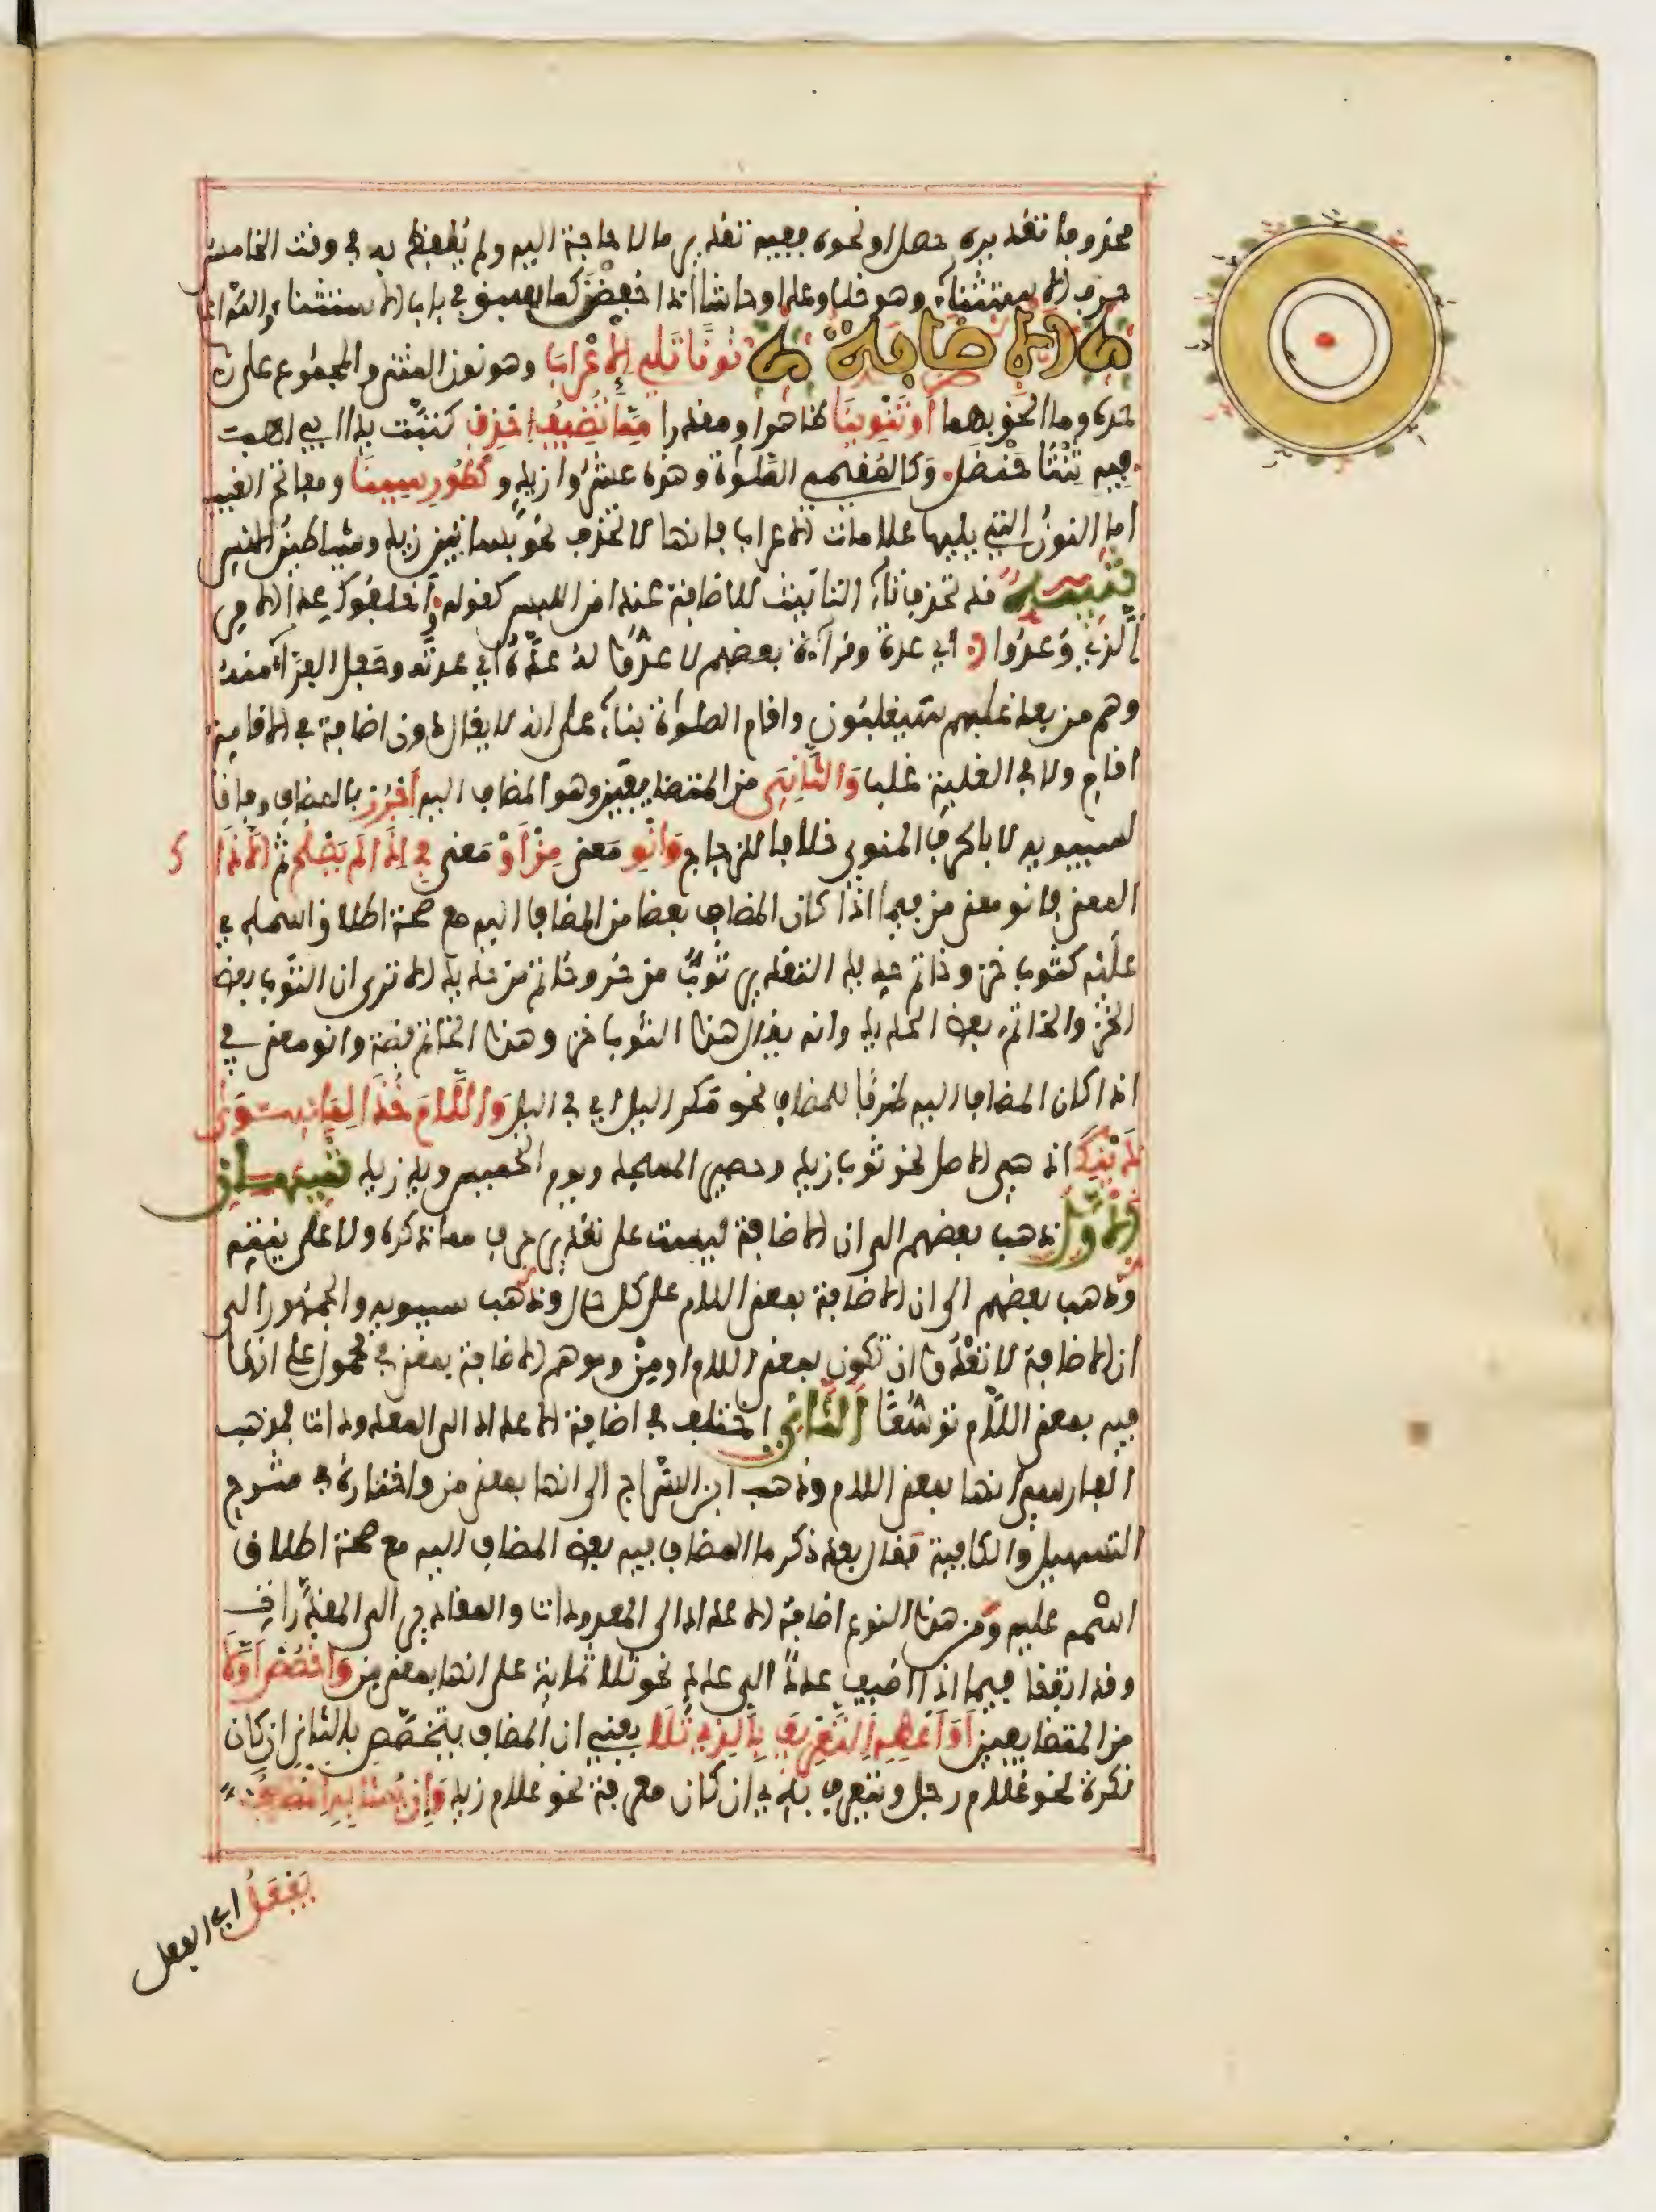 محذوفا تقديره حصل او نحوه ففيه تقدير ما لا حاجة اليه ولم يلفظ به في وقت الخامس
حرف الاستثناء وهو خلا وعدا وحاشا اذا خفضن كما سبق في باب الاستثناء والله اعلم
الاضافة نونا تلي الاعراب وهو نون المثنى والمجموع على
حده وما الحق بهما او تنوينا ظاهرا او مقدرا مما تضيف احذف كتبت يدا ابي لهب
فيه ثنتا حنضل وكالمقيمي الصلوة وهذه عشرو زيد وكطور سينا ومفاتح الغيب
اما النون التي يليها علامات الاعراب فانها لا تحذف نحو بساتين زيد وشياطين الانس
تنبيه قد تحذف تاء التانيث للاضافة عند امن اللبس كقوله واخلفوك عدا الامر
الذي وعدوا اي عدة وقراءة بعضهم لاعدوا له عدة اي عدته وجعل الفراء منه
وهم من بعد غلبهم سيغلبون واقام الصلوة بناء على انه لا يقال دون اضافة في الاقامة
اقام ولا في الغلبة غلبا والثاني من المتضايفين وهو المضاف اليه اجرر بالمضاف وفاقا
لسيبويه لا بالحرف المنوي خلافا للزجاج وانو معنى من او معنى في اذا لم يصلح ثم الا ذا
المعنى فانو معنى من فيما اذا كان المضاف بعضا من المضاف اليه مع صحة اطلاق اسمه في
عليه كثوب خز وخاتم حديد التقدير ثوب من خز وخاتم من حديد الا ترى ان الثوب بعض
الخز والخاتم بعض الحديد وانه يقال هذا الثوب خز وهذا الخاتم فضة وانو معنى في
اذا كان المضاف اليه ظرفا للمضاف نحو مكر اليل اي في اليل واللام خذا لما سوى
ذينك اذ هي الاصل نحو ثوب زيد وحصير المسجد ويوم الخميس ويد زيد تنبيهان
الاول ذهب بعضهم الى ان الاضافة ليست على تقدير حرف مما ذكره ولا على نيته
وذهب بعضهم الى ان الاضافة بمعنى اللام على كل حال وذهب سيبويه والجمهور الى
ان الاضافة لا تعدو ان تكون بمعنى اللام او من وموهم الاضافة بمعنى في محمول على انها
فيه بمعنى اللام توسعا الثاني اختلف في اضافة الاعداد الى المعدودات فمذهب
الفارسي انها بمعنى اللام وذهب ابن السراج الى انها بمعنى من واختاره في شرح
التسهيل والكافية فقال بعد ذكر ما المضاف فيه بعض المضاف اليه مع صحة اطلاق
اسمه عليه ومن هذا النوع اضافة الاعداد الى المعدودات والمقادير الى المقدرات
وقد اتفقا فيما اذا اضيف عدد الى عدد نحو ثلاثماية على انها بمعنى من واخصص اولا
من المتضايفين او اعطه التعريف بالذي تلا يعني ان المضاف يتخصص بالثاني ان كان
نكرة نحو غلام رجل ويتعرف به ان كان معرفة نحو غلام زيد وان يشابه المضاف
يفعل اي الفعل